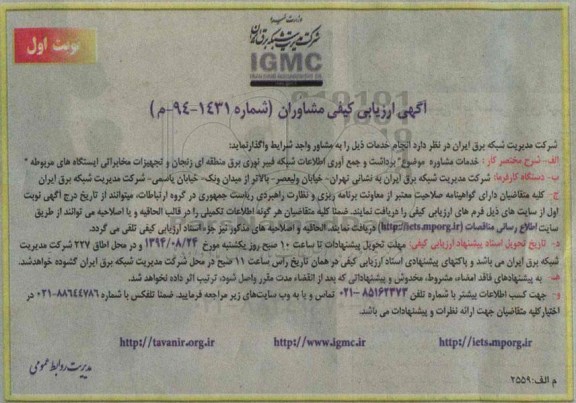 وزارت نیرو
شرکت مدیریت شبکه برق ایران
IGMC
نوبت اول
آگهی ارزیابی کیفی مشاوران (شماره ۱۴۳۱-۹۴-م)
شرکت مدیریت شبکه برق ایران در نظر دارد انجام خدمات ذیل را به مشاور واجد شرایط واگذارنماید:
الف- شرح مختصر کار: خدمات مشاوره موضوع" برداشت و جمع آوری اطلاعات شبکه فیبر نوری برق منطقه ای زنجان و تجهیزات مخابراتی ایستگاه های مربوطه "
ب- دستگاه کارفرما: شرکت مدیریت شبکه برق ایران به نشانی تهران- خیابان ولیعصر- بالاتر از میدان ونک- خیابان یاسمی- شرکت مدیریت شبکه برق ایران
ج- کلیه متقاضیان دارای گواهینامه صلاحیت معتبر از معاونت برنامه ریزی و نظارت راهبردی ریاست جمهوری در گروه ارتباطات، میتوانند از تاریخ درج آگهی نوبت
اول از سایت های ذیل فرم های ارزیابی کیفی را دریافت نمایند. ضمنا کلیه متقاضیان هر گونه اطلاعات تکمیلی را در قالب الحاقیه و یا اصلاحیه می توانند از طریق
سایت اطلاع رسانی مناقصات (http://iets.mporg.ir) دریافت نمایند. الحاقیه و اصلاحیه های مذکور نیز جزء اسناد ارزیابی کیفی تلقی می گردد.
د- تاریخ تحویل اسناد پیشنهاد ارزیابی کیفی: مهلت تحویل پیشنهادات تا ساعت ۱۰ صبح روز یکشنبه مورخ ۱۳۹۴/۰۸/۲۴ و در محل اطاق ۲۲۷ شرکت مدیریت
شبکه برق ایران می باشد و پاکتهای پیشنهادی اسناد ارزیابی کیفی در همان تاریخ راس ساعت ۱۱ صبح در محل شرکت مدیریت شبکه برق ایران گشوده خواهدشد.
ه- به پیشنهادهای فاقد امضاء، مشروط، مخدوش و پیشنهاداتی که بعد از انقضاء مدت مقرر واصل شود، ترتیب اثر داده نخواهد شد.
و- جهت کسب اطلاعات بیشتر با شماره تلفن ۸۵۱۶۲۳۷۳-۰۲۱ تماس و یا به وب سایت‌های زیر مراجعه فرمایید. ضمنا تلفکس با شماره ۸۸۶۴۴۷۸۶-۰۲۱ در
اختیار کلیه متقاضیان جهت ارائه نظرات و پیشنهادات می باشد.
http://iets.mporg.ir http://www.igmc.ir http://tavanir.org.ir
مدیریت روابط عمومی
م الف: ۲۵۵۹